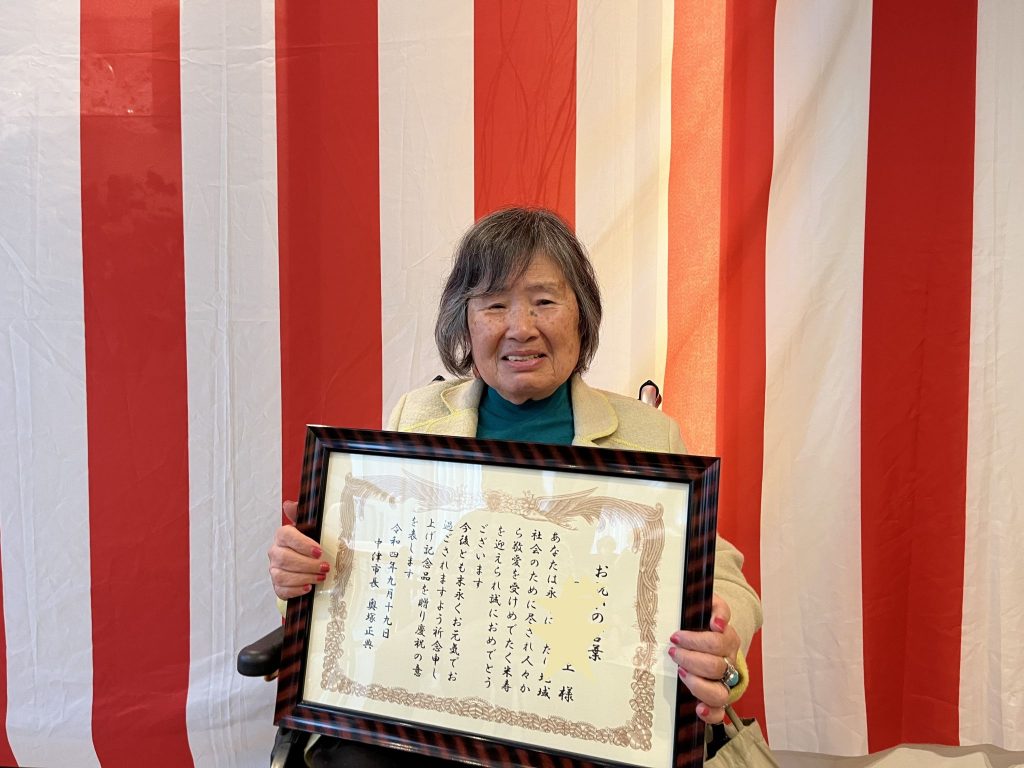 お祝いの言葉
様
あなたは永 に たり地域
社会のために尽され人々か
ら敬愛を受けめでたく米寿
を迎えられ誠におめでとう
ございます
今後とも末永くお元気でお
過ごされますよう祈念申し
上げ記念品を贈り慶祝の意
を表します
令和四年九月十九日
中津市長 奥塚正典